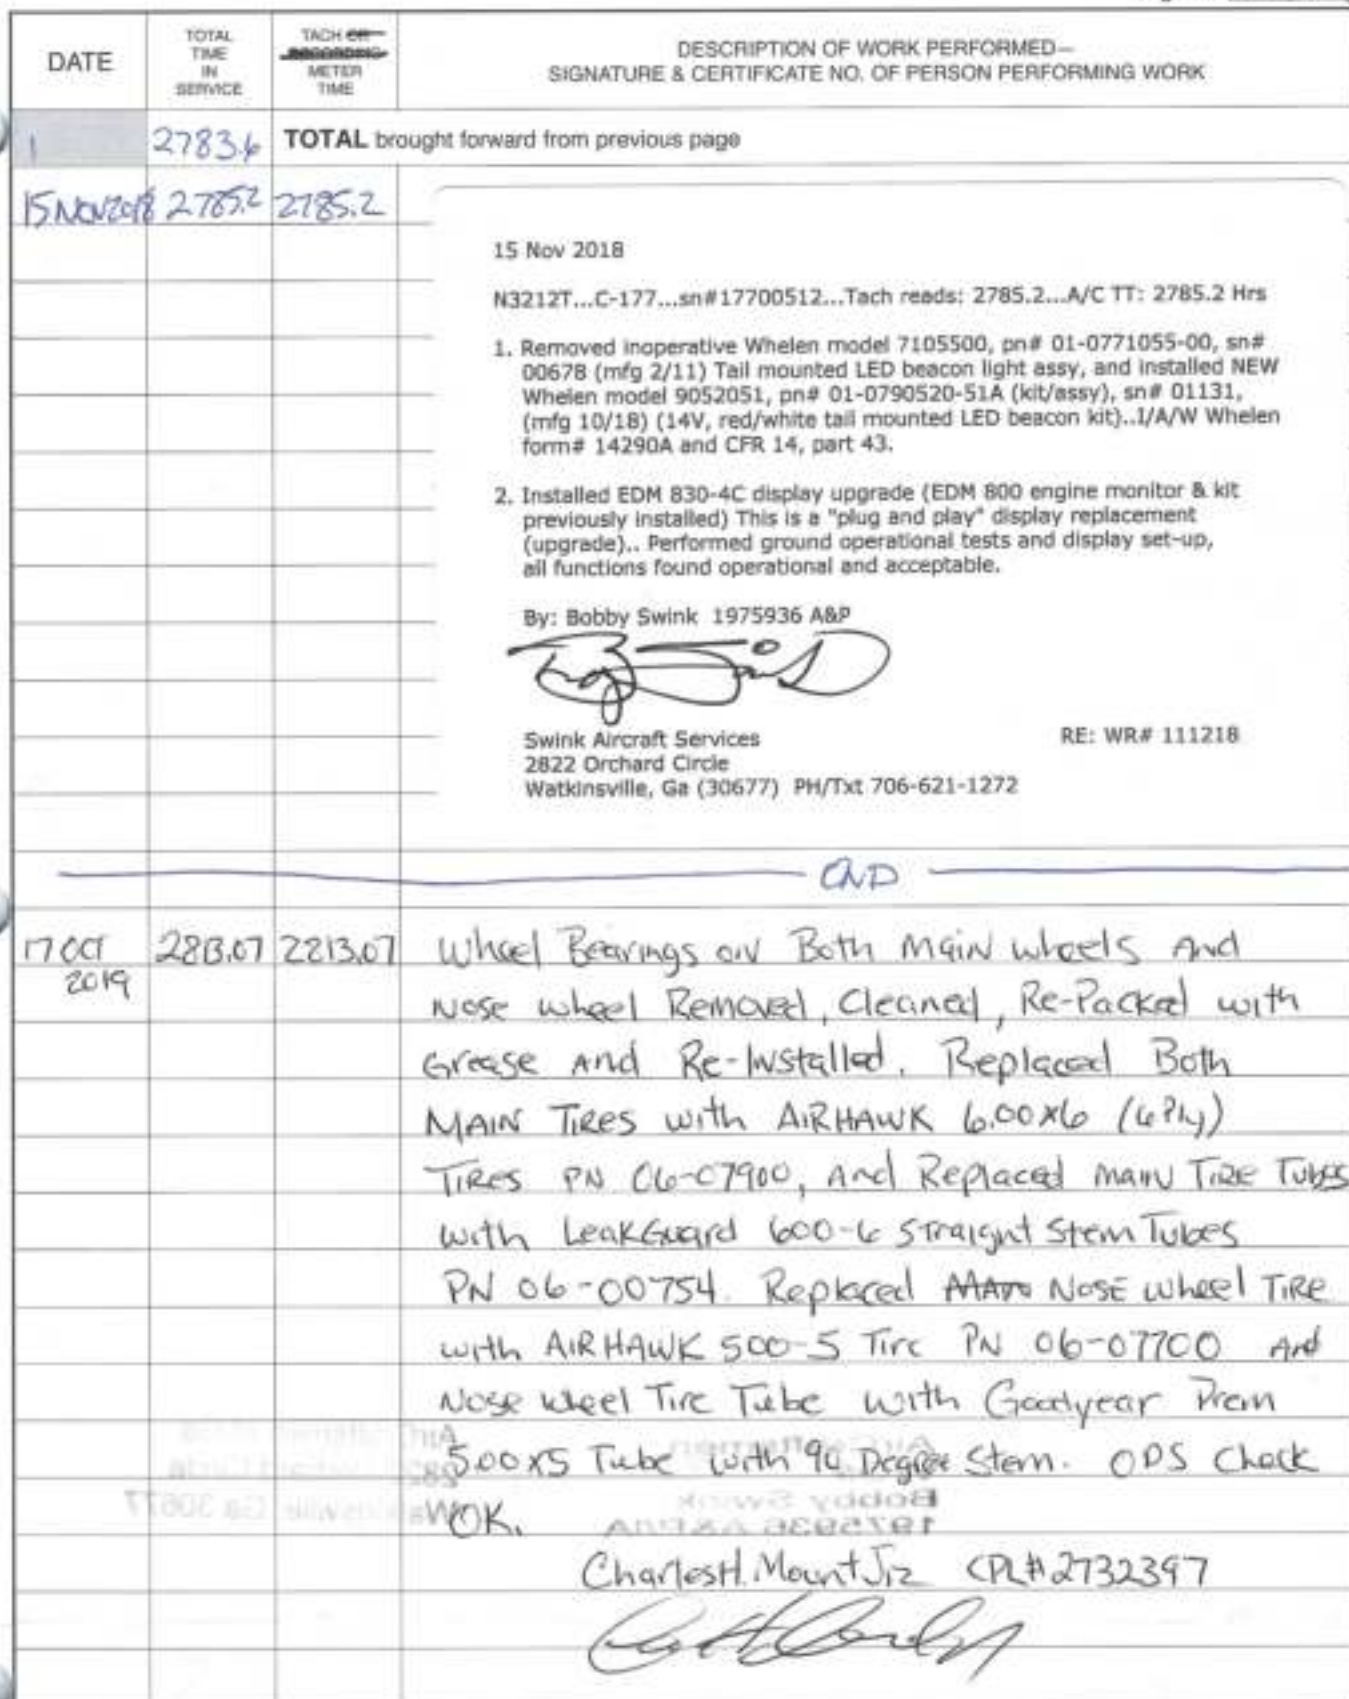 DATE
TOTAL TIME IN SERVICE
TACH OR RECORDING METER TIME
DESCRIPTION OF WORK PERFORMED—
SIGNATURE & CERTIFICATE NO. OF PERSON PERFORMING WORK
1 2783.6 TOTAL brought forward from previous page
15 NOV 2018 2785.2 2785.2
15 Nov 2018
N3212T...C-177...sn#17700512...Tach reads: 2785.2...A/C TT: 2785.2 Hrs
1. Removed inoperative Whelen model 7105500, pn# 01-0771055-00, sn#
00678 (mfg 2/11) Tail mounted LED beacon light assy, and installed NEW
Whelen model 9052051, pn# 01-0790520-51A (kit/assy), sn# 01131,
(mfg 10/18) (14V, red/white tail mounted LED beacon kit)..I/A/W Whelen
form# 14290A and CFR 14, part 43.
2. Installed EDM 830-4C display upgrade (EDM 800 engine monitor & kit
previously installed) This is a "plug and play" display replacement
(upgrade).. Performed ground operational tests and display set-up,
all functions found operational and acceptable.
By: Bobby Swink 1975936 A&P
Swink Aircraft Services RE: WR# 111218
2822 Orchard Circle
Watkinsville, Ga (30677) PH/Txt 706-621-1272
END
17 OCT 2813.07 2213.07 Wheel Bearings on Both Main wheels And
2019 Nose wheel Removed, Cleaned, Re-Packed with
Grease And Re-Installed. Replaced Both
MAIN TIRES with AIRHAWK 6.00x6 (6 Ply)
TIRES PN 06-07900, And Replaced Main TIRE Tubes
with LeakGuard 600-6 Straight Stem Tubes
PN 06-00754. Replaced Nose Wheel TIRE
with AIRHAWK 500-5 Tire PN 06-07700 And
Nose Wheel Tire Tube with Goodyear Prem
5.00x5 Tube with 90 Degree Stem. OPS Check
OK.
Charles H. Mount Jr CPL#2732397